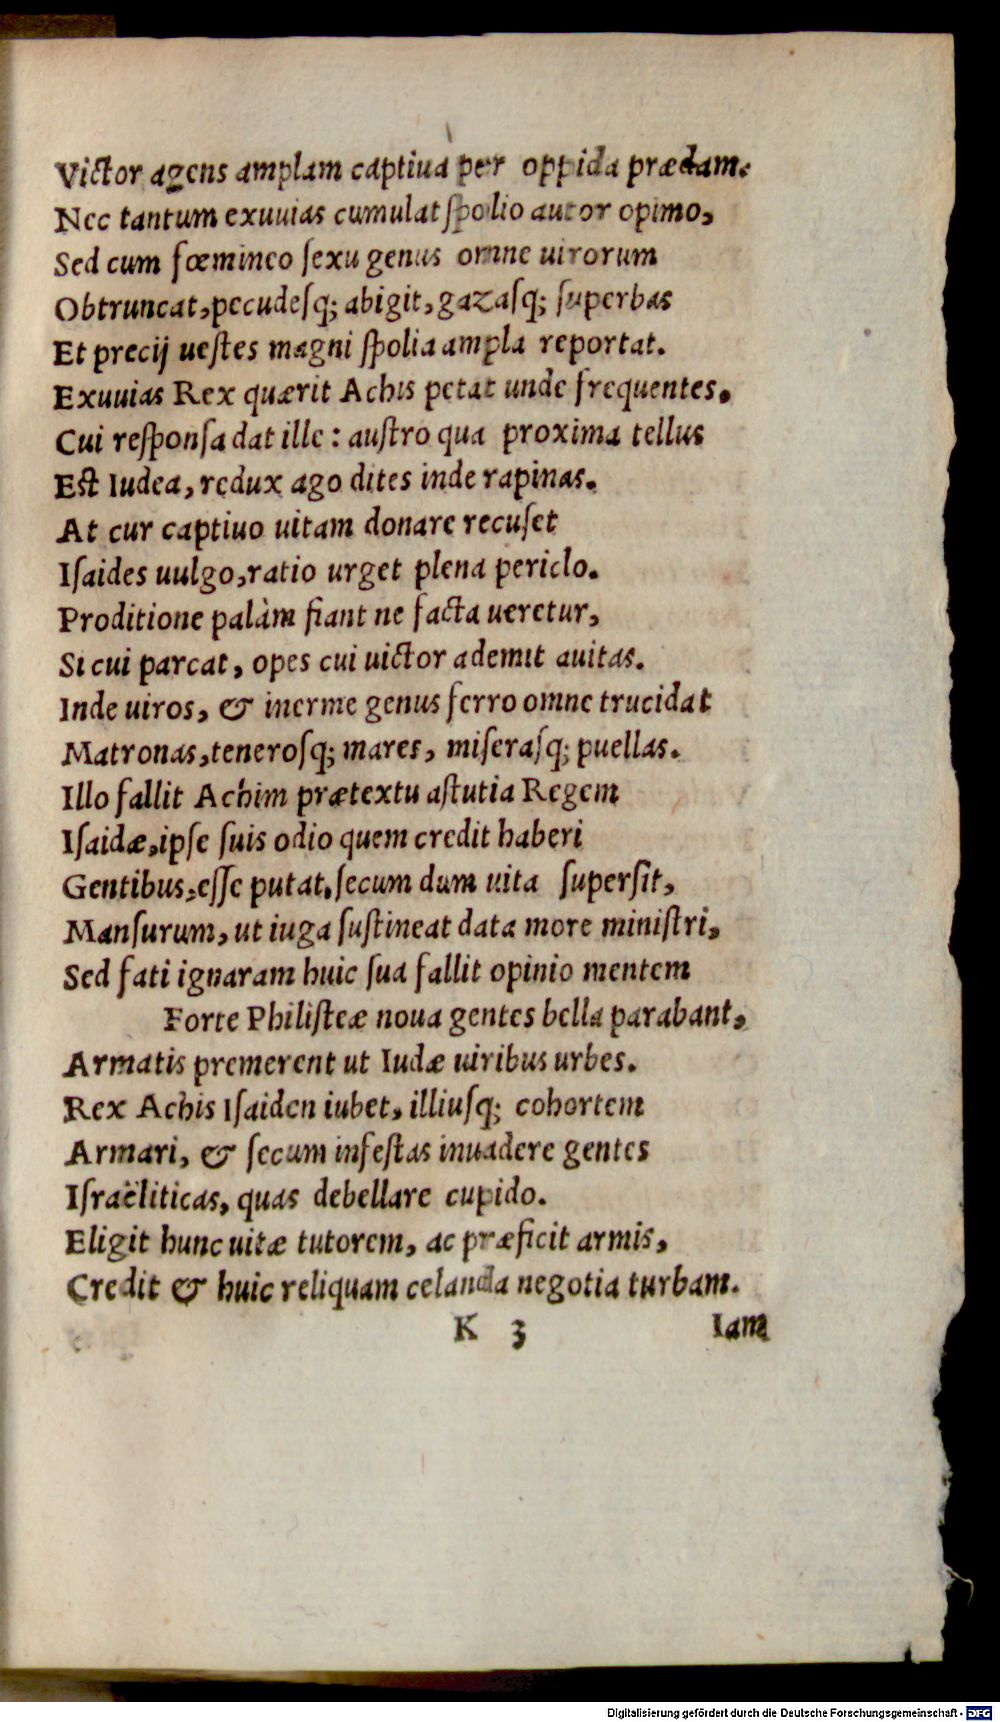 Victor agens amplam captiua per oppida prædam.
Nec tantum exuuias cumulat ſpolio autor opimo,
Sed cum fœmineo ſexu genus omne uirorum
Obtruncat, pecudesq; abigit, gazasq; ſuperbas
Et precij ueſtes magni ſpolia ampla reportat.
Exuuias Rex quærit Achis petat unde frequentes.
Cui reſponſa dat ille: auſtro qua proxima tellus
Est Iudea, redux ago dites inde rapinas.
At cur captiuo uitam donare recuſet
Iſaides uulgo, ratio urget plena periclo.
Proditione palàm fiant ne facta ueretur,
Si cui parcat, opes cui uictor ademit auitas.
Inde uiros, & inerme genus ferro omne trucidat
Matronas, teneroſq; mares, miſeraſq; puellas.
Illo fallit Achim prætextu aſtutia Regem
Iſaidæ, ipſe ſuis odio quem credit haberi
Gentibus, eſſe putat. ſecum dum uita ſuperſit,
Manſurum, ut iuga ſuſtineat data more miniſtri,
Sed fati ignaram huic ſua fallit opinio mentem
Forte Philiſteæ noua gentes bella parabant,
Armatis premerent ut Iudæ uiribus urbes.
Rex Achis Iſaiden iubet, illiuſq; cohortem
Armari, & ſecum infeſtas inuadere gentes
Iſraëliticas, quas debellare cupido.
Eligit hunc uitæ tutorem, ac præficit armis,
Credit & huic reliquam celanda negotia turbam.
K 3 Iam
Digitalisierung gefördert durch die Deutsche Forschungsgemeinschaft - DFG